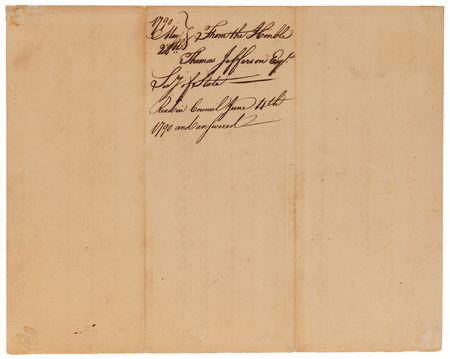 1790
May } From the Honble
28th
Thomas Jefferson Esqr.
Secy of State
Read in Council June 4th
1790 and answered